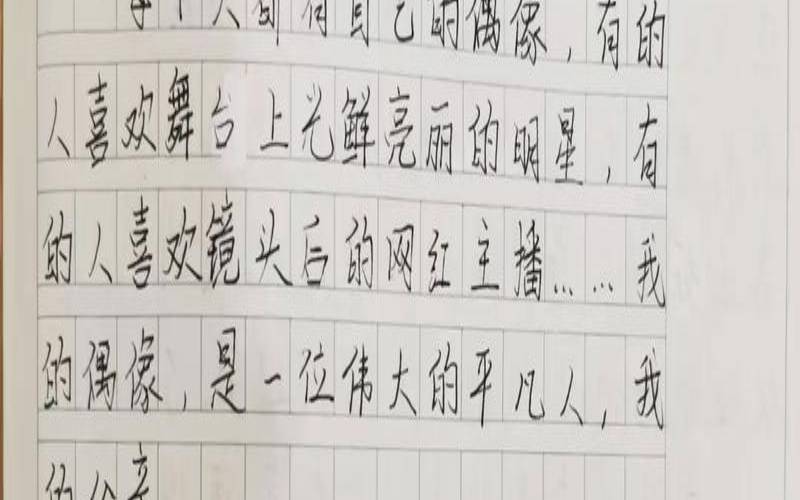 每个人都有自己的偶像，有的
人喜欢舞台上光鲜亮丽的明星，有
的人喜欢镜头后的网红主播……我
的偶像，是一位伟大的平凡人，我
的父亲